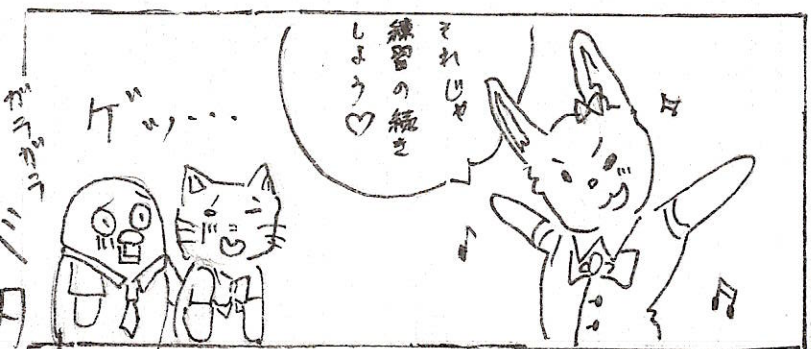 それじゃ
練習の続き
しよう♡
ゲッ・・・
ガラガラ